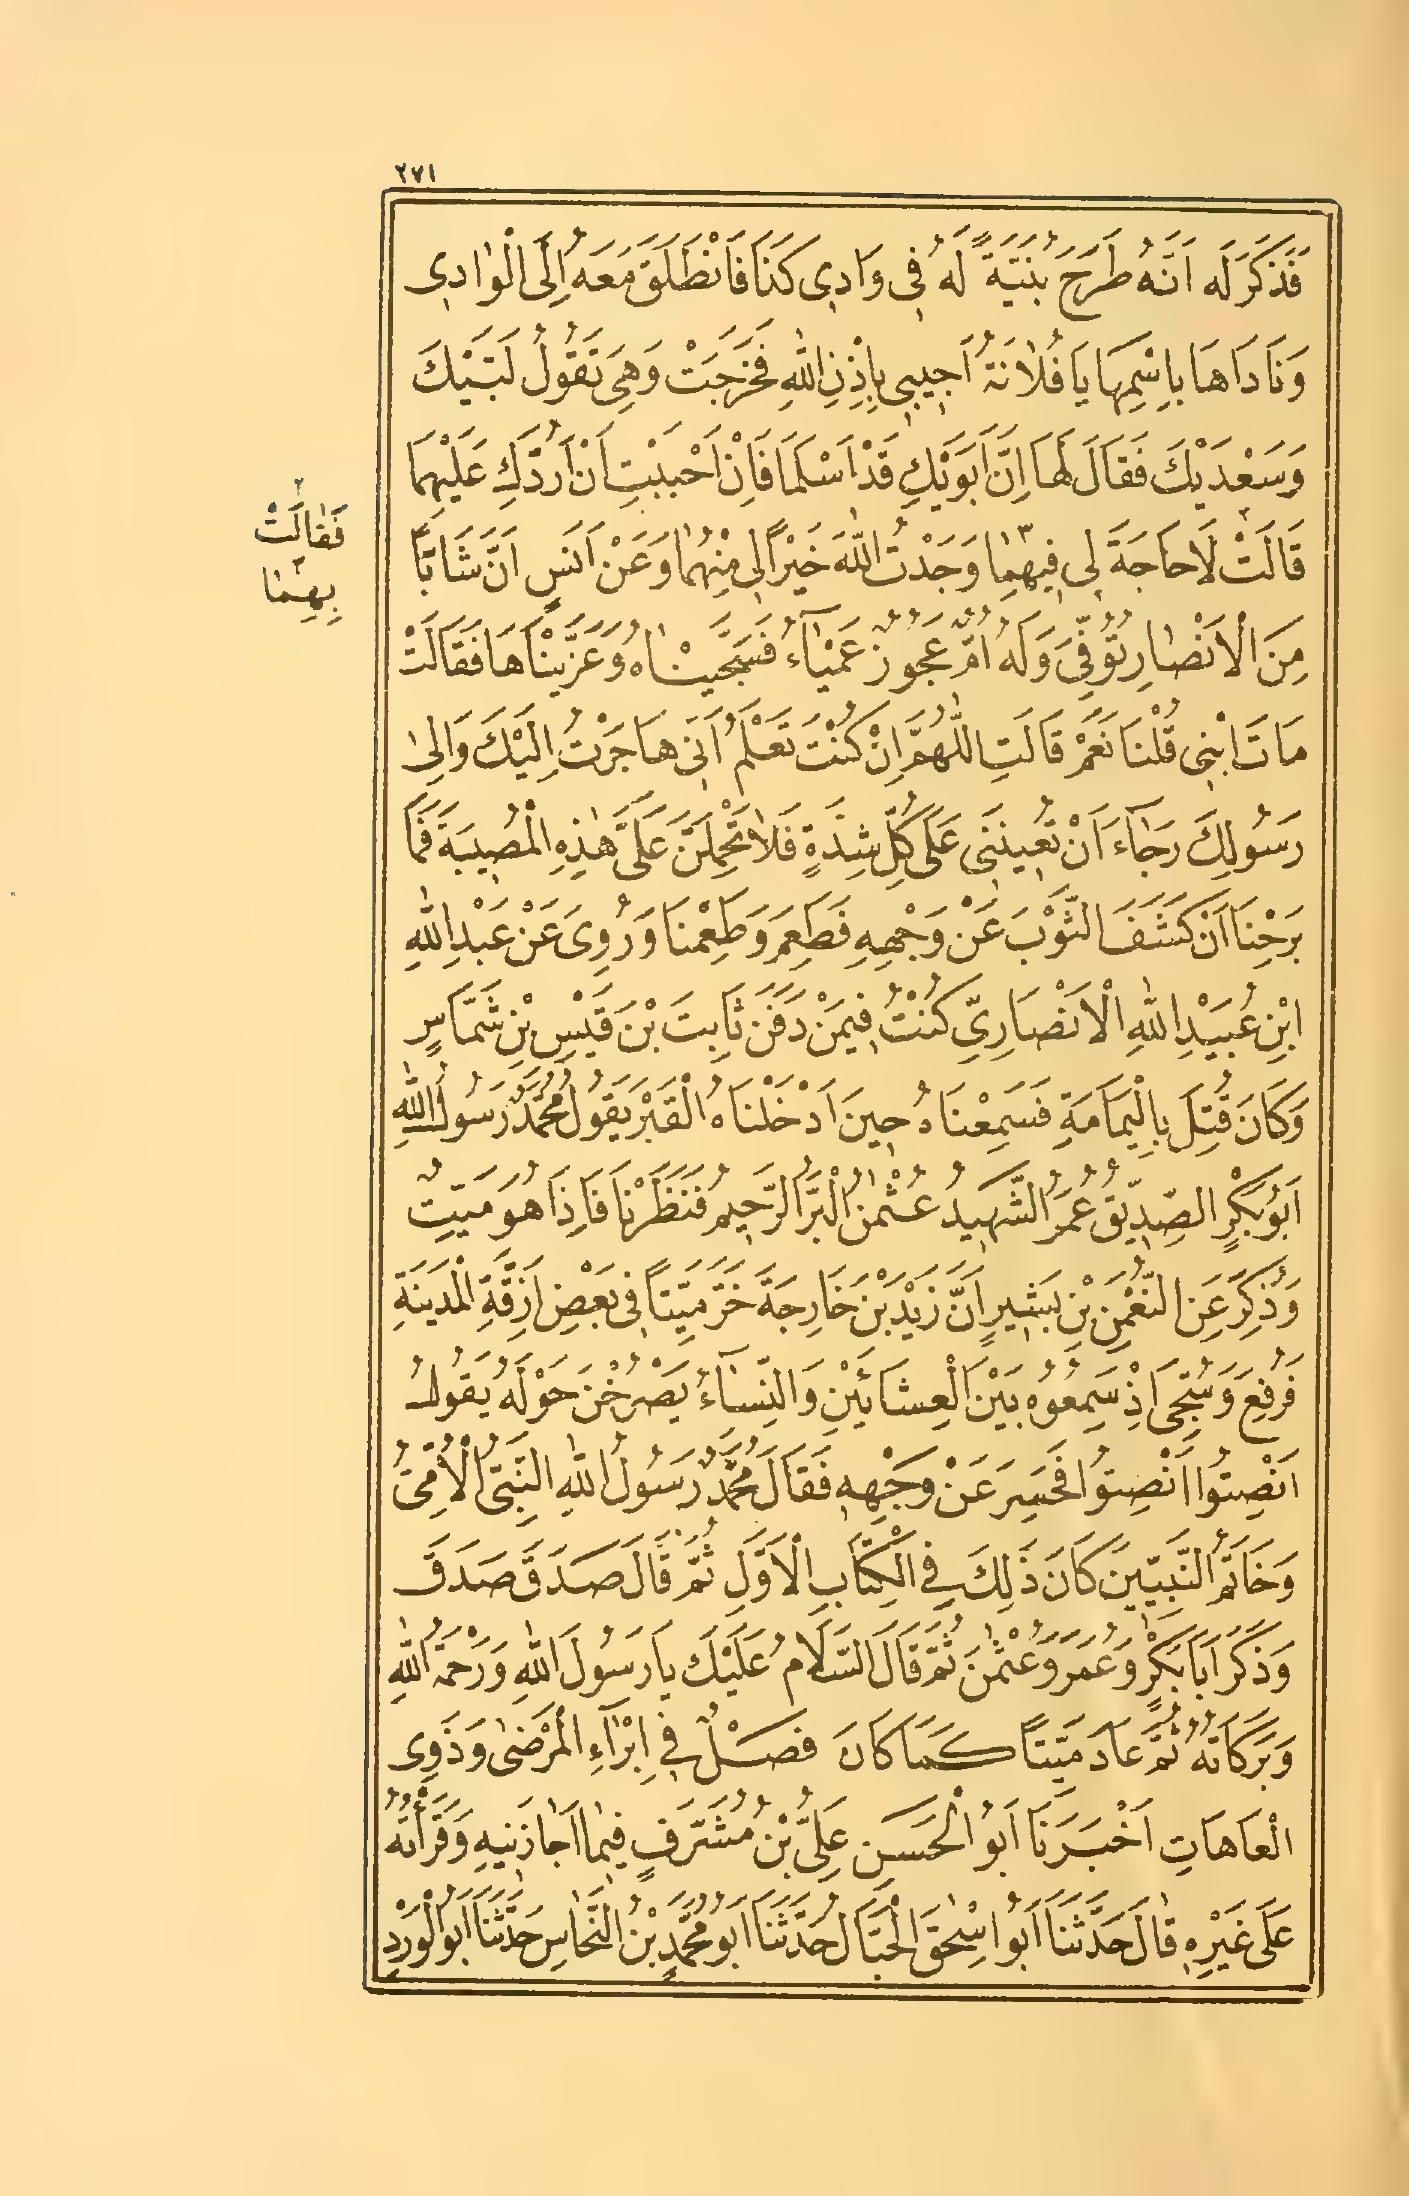 ٢٧١
فَذَكَرَ لَه اَنَّهُ طَرَحَ بُنَيَّةً لَهُ فِي وَادِي كَذَا فَانْطَلَقَ مَعَهُ اِلَى الْوَادِي
وَنَادَاهَا بِاسْمِهَا يَا فُلَانَةُ اَجِيبِي بِاِذْنِ اللّٰهِ فَخَرَجَتْ وَهِيَ تَقُولُ لَبَّيْكَ
وَسَعْدَيْكَ فَقَالَ لَهَا اِنَّ اَبَوَيْكِ قَدْ اَسْلَمَا فَاِنْ اَحْبَبْتِ اَنْ اَرُدَّكِ عَلَيْهِمَا
قَالَتْ٢ لَا حَاجَةَ لِي فِيهِمَا٣ وَجَدْتُ اللّٰهَ خَيْرًا لِي مِنْهُمَا وَعَنْ اَنَسٍ اَنَّ شَابًّا
مِنَ الْاَنْصَارِ تُوُفِّيَ وَلَهُ اُمٌّ عَجُوزٌ عَمْيَآءُ فَسَجَّيْنَاهُ وَعَزَّيْنَاهَا فَقَالَتْ
مَاتَ ابْنِي قُلْنَا نَعَمْ قَالَتِ اللّٰهُمَّ اِنْ كُنْتَ تَعْلَمُ اَنِّي هَاجَرْتُ اِلَيْكَ وَاِلَى
رَسُولِكَ رَجَآءَ اَنْ تُعِينَنِي عَلَى كُلِّ شِدَّةٍ فَلَا تَحْمِلَنَّ عَلَيَّ هٰذِهِ الْمُصِيبَةَ فَمَا
بَرَحْنَا اَنْ كَشَفَ الثَّوْبَ عَنْ وَجْهِهِ فَطَعِمَ وَطَعِمْنَا وَرُوِيَ عَنْ عَبْدِ اللّٰهِ
ابْنِ عُبَيْدِ اللّٰهِ الْاَنْصَارِيِّ كُنْتُ فِيمَنْ دَفَنَ ثَابِتَ بْنَ قَيْسِ بْنِ شَمَّاسٍ
وَكَانَ قُتِلَ بِالْيَمَامَةِ فَسَمِعْنَاهُ حِينَ اَدْخَلْنَاهُ الْقَبْرَ يَقُولُ مُحَمَّدٌ رَسُولُ اللّٰهِ
اَبُو بَكْرٍ الصِّدِّيقُ عُمَرُ الشَّهِيدُ عُثْمٰنُ الْبَرُّ الرَّحِيمُ فَنَظَرْنَا فَاِذَا هُوَ مَيِّتٌ
وَذُكِرَ عَنِ النُّعْمٰنِ بْنِ بَشِيرٍ اَنَّ زَيْدَ بْنَ خَارِجَةَ خَرَّ مَيِّتًا فِي بَعْضِ اَزِقَّةِ الْمَدِينَةِ
فَرُفِعَ وَسُجِّيَ اِذْ سَمِعُوهُ بَيْنَ الْعِشَائَيْنِ وَالنِّسَآءُ يَصْرُخْنَ حَوْلَهُ يَقُولُ
اَنْصِتُوا اَنْصِتُوا فَحَسِرَ عَنْ وَجْهِهِ فَقَالَ مُحَمَّدٌ رَسُولُ اللّٰهِ النَّبِيُّ الْاُمِّيُّ
وَخَاتَمُ النَّبِيِّينَ كَانَ ذَلِكَ فِي الْكِتَابِ الْاَوَّلِ ثُمَّ قَالَ صَدَقَ صَدَقَ
وَذَكَرَ اَبَا بَكْرٍ وَعُمَرَ وَعُثْمٰنَ ثُمَّ قَالَ السَّلَامُ عَلَيْكَ يَا رَسُولَ اللّٰهِ وَرَحْمَةُ اللّٰهِ
وَبَرَكَاتُهُ ثُمَّ عَادَ مَيِّتًا كَمَا كَانَ فَصْلٌ فِي اِبْرَآءِ الْمَرْضٰى وَذَوِي
الْعَاهَاتِ اَخْبَرَنَا اَبُو الْحَسَنِ عَلِيُّ بْنُ مُشَرَّفٍ فِيمَا اَجَازَنِيهِ وَقَرَأْتُهُ
عَلَى غَيْرِهِ قَالَ حَدَّثَنَا اَبُو اِسْحٰقَ الْحَبَّالُ حَدَّثَنَا اَبُو مُحَمَّدِ بْنُ النَّحَّاسِ حَدَّثَنَا اَبُو الْوَرْدِ
٢
فَقَالَتْ
٣
بِهِمَا